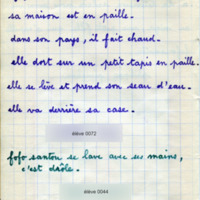 sa maison est en paille.
dans son pays, il fait chaud.
elle dort sur un petit tapis en paille.
elle se lève et prend son seau d'eau.
elle va derrière sa case.
élève 0072
fofo santou se lave avec ses mains,
c'est drôle.
élève 0044